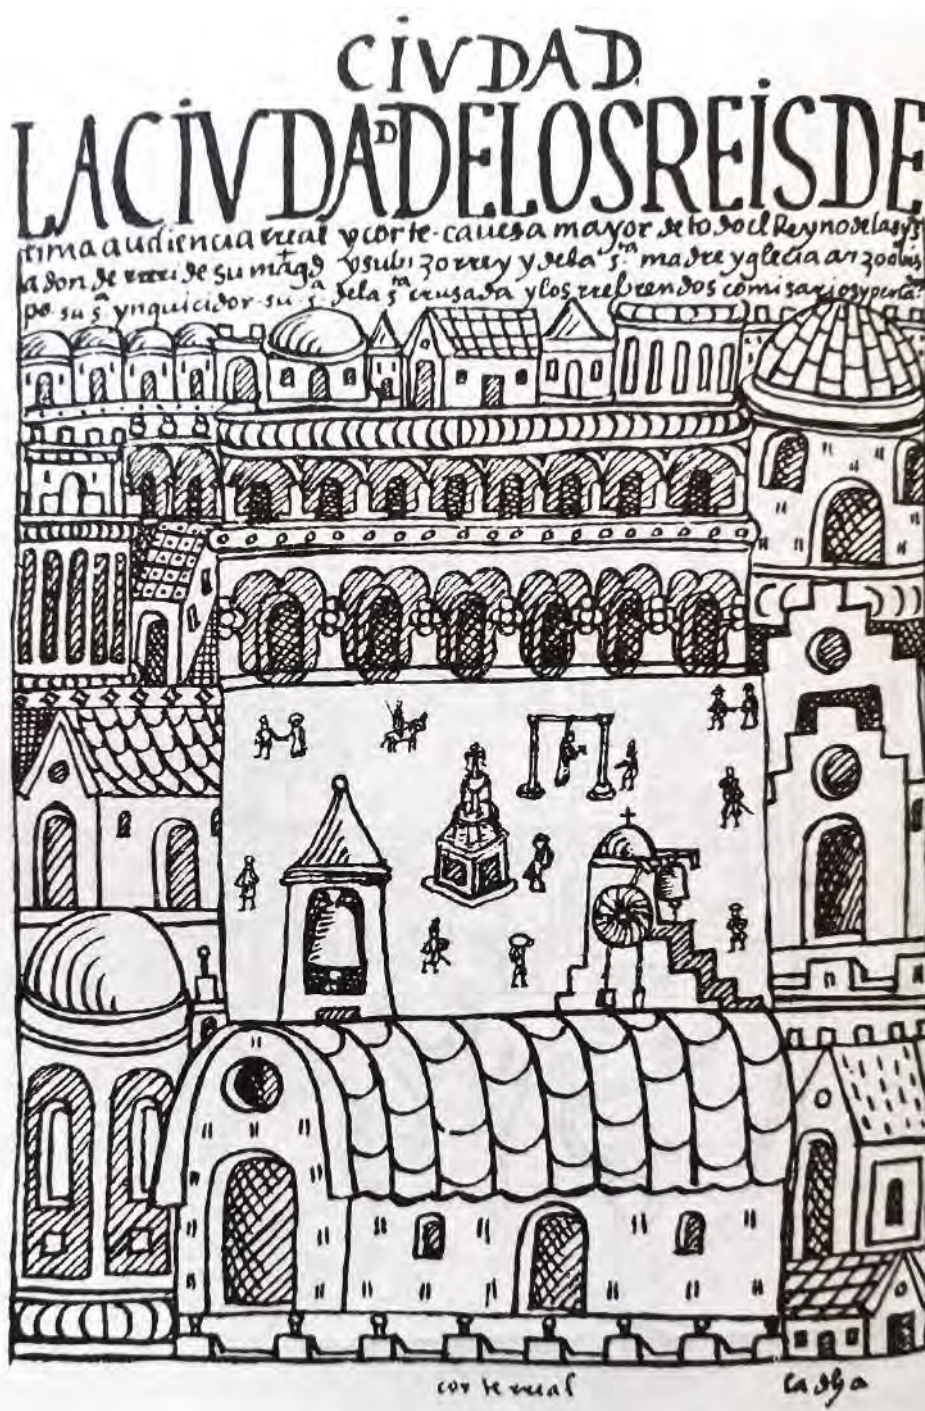 CiVDAD
LACiVDAD DELOSREiSDE
lima audiencia rreal y corte-cauesa mayor de todo el Reyno de las
adonde rreride su mag.d y subizorrey y dela s.ta madre yglecia arzobis
po su s.a ynquicidor su s.a dela s.ta crusada y los rreberendos comisarios y perla
corte rreal
la dha